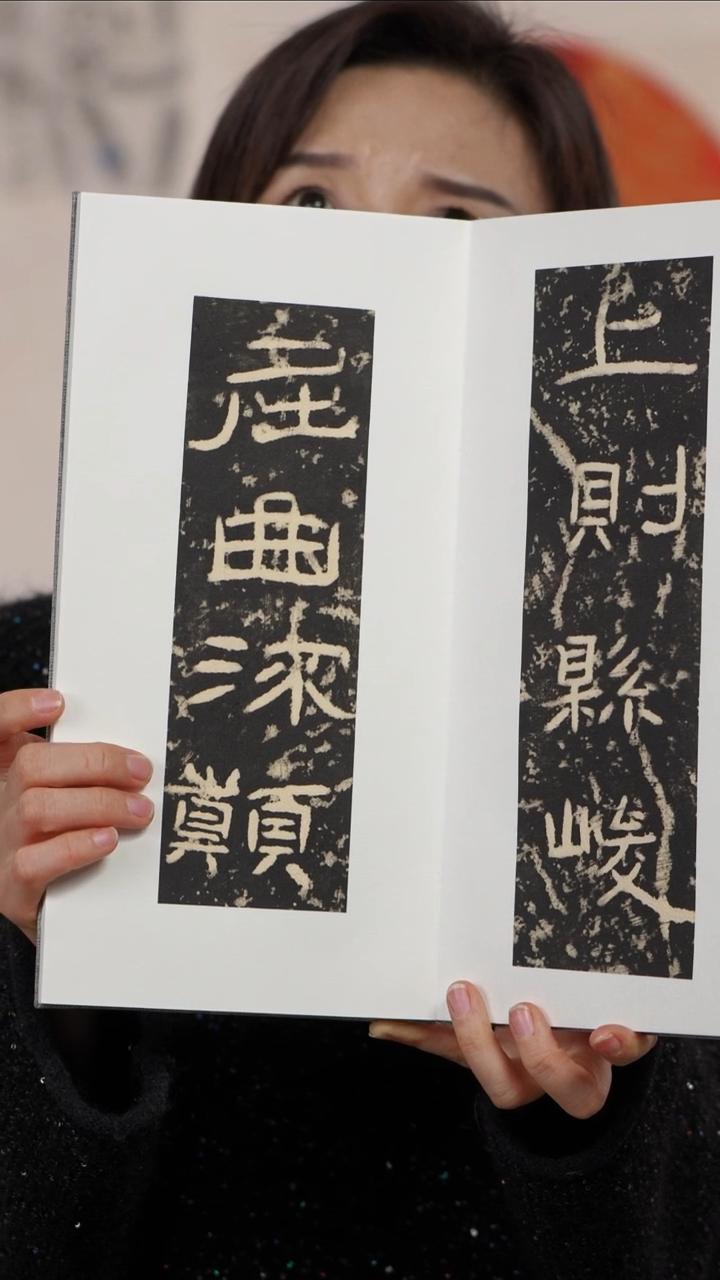 上則縣峻
屈曲流顛